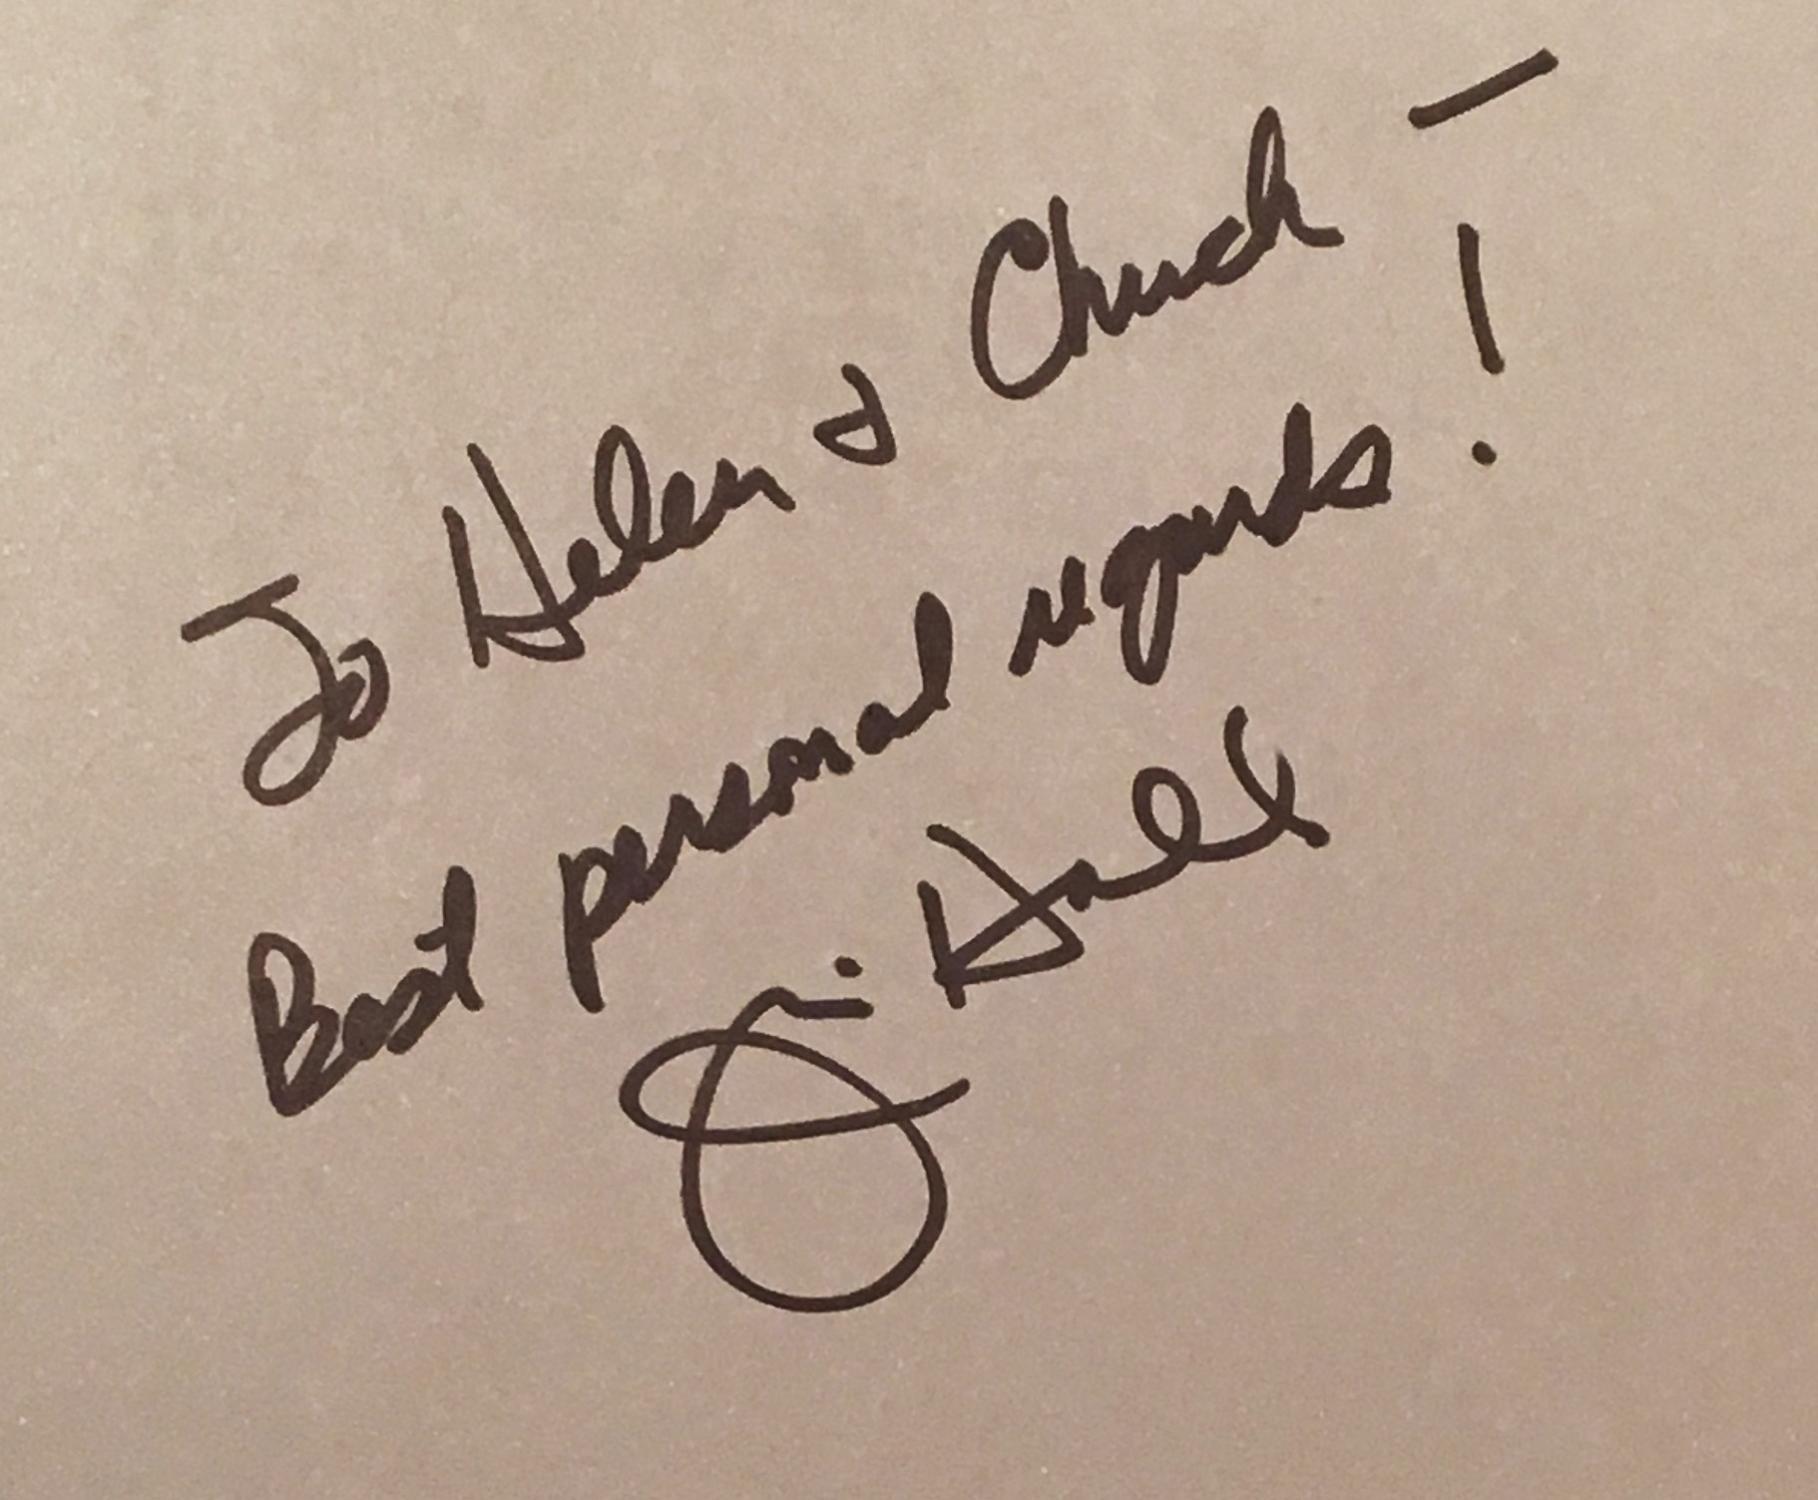 To Helen & Chuck –
Best personal regards!
Jim Hall